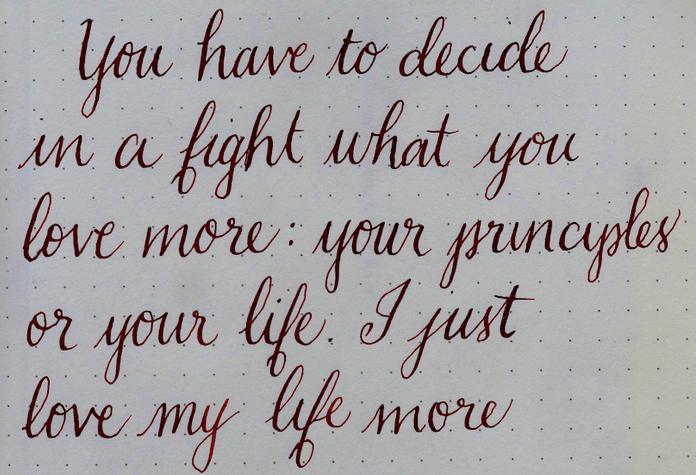 You have to decide
in a fight what you
love more: your principles
or your life. I just
love my life more